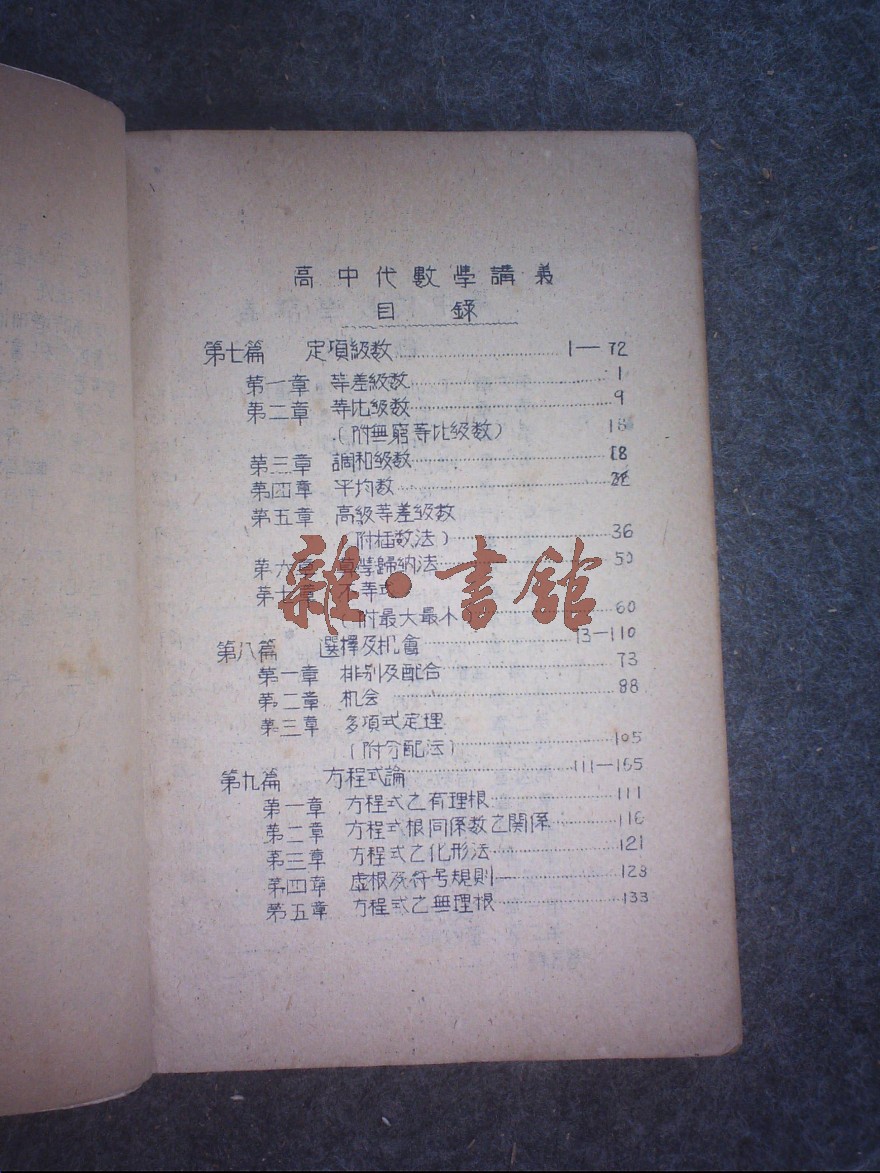 高中代數學講義
目錄
第七篇 定項級数 1—72
第一章 等差級数 1
第二章 等比級数 9
(附無窮等比級数) 16
第三章 調和級数 18
第四章 平均数
第五章 高級等差級数
(附插数法) 36
第六章 學歸納法 50
第七章 不等式
(附最大最小) 60
第八篇 選擇及机會 73—110
第一章 排列及配合 73
第二章 机会 88
第三章 多項式定理
(附分配法) 105
第九篇 方程式論 111—165
第一章 方程式之有理根 111
第二章 方程式根同係数之関係 116
第三章 方程式之化形法 121
第四章 虚根及符号規則 128
第五章 方程式之無理根 133
雜·書館